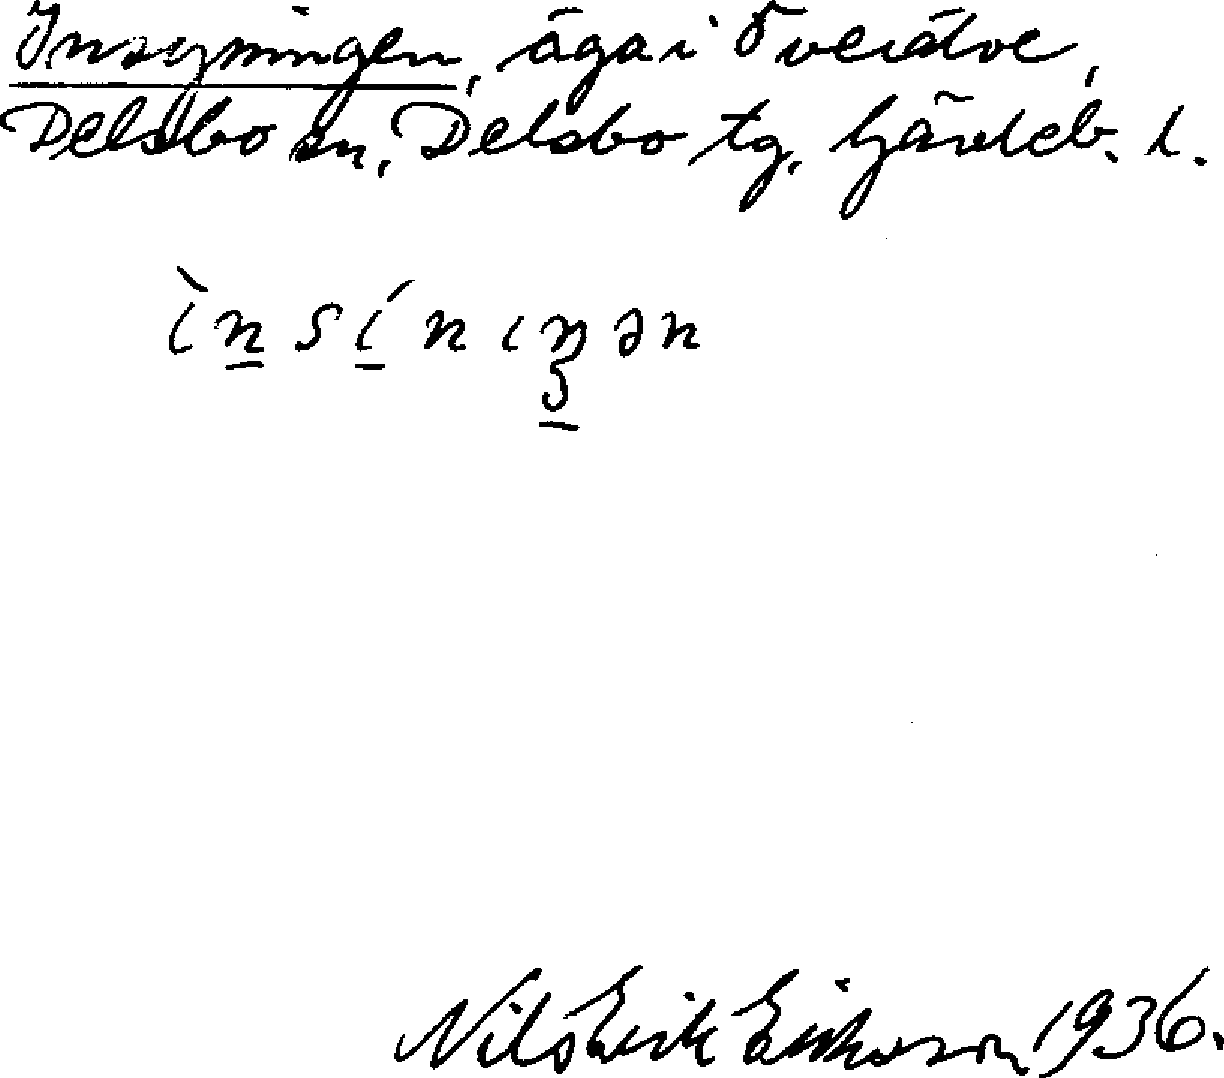 Insyningen, äga i Överälve,
Delsbo sn, Delsbo tg, Gävleb. l.
Nils Erik Eriksson 1936.